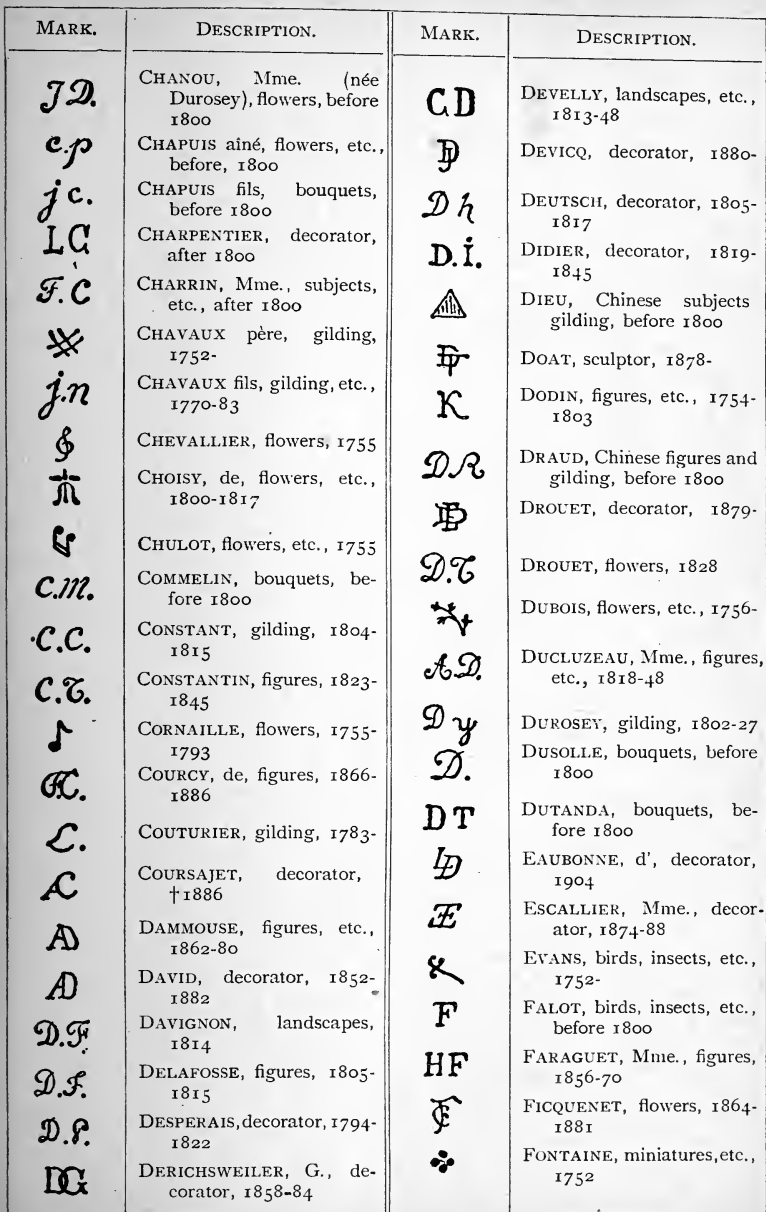 MARK. DESCRIPTION.
J D. CHANOU, Mme. (née
Durosey), flowers, before
1800
c.p CHAPUIS aîné, flowers, etc.,
before, 1800
j c. CHAPUIS fils, bouquets,
before 1800
LC CHARPENTIER, decorator,
after 1800
F. C CHARRIN, Mme., subjects,
etc., after 1800
CHAVAUX père, gilding,
1752-
j.n CHAVAUX fils, gilding, etc.,
1770-83
CHEVALLIER, flowers, 1755
CHOISY, de, flowers, etc.,
1800-1817
CHULOT, flowers, etc., 1755
C.M. COMMELIN, bouquets, be-
fore 1800
C.C. CONSTANT, gilding, 1804-
1815
C.T. CONSTANTIN, figures, 1823-
1845
CORNAILLE, flowers, 1755-
1793
COURCY, de, figures, 1866-
1886
C. COUTURIER, gilding, 1783-
AC COURSAJET, decorator,
†1886
AD DAMMOUSE, figures, etc.,
1862-80
AD DAVID, decorator, 1852-
1882
D.F. DAVIGNON, landscapes,
1814
D.F. DELAFOSSE, figures, 1805-
1815
D.P. DESPERAIS, decorator, 1794-
1822
DG DERICHSWEILER, G., de-
corator, 1858-84
MARK. DESCRIPTION.
C.D DEVELLY, landscapes, etc.,
1813-48
DEVICQ, decorator, 1880-
D h DEUTSCH, decorator, 1805-
1817
D.I. DIDIER, decorator, 1819-
1845
DIEU, Chinese subjects
gilding, before 1800
DOAT, sculptor, 1878-
K DODIN, figures, etc., 1754-
1803
DR DRAUD, Chinese figures and
gilding, before 1800
DROUET, decorator, 1879-
D.T DROUET, flowers, 1828
DUBOIS, flowers, etc., 1756-
A.D. DUCLUZEAU, Mme., figures,
etc., 1818-48
D y DUROSEY, gilding, 1802-27
D. DUSOLLE, bouquets, before
1800
DT DUTANDA, bouquets, be-
fore 1800
LD EAUBONNE, d', decorator,
1904
Æ ESCALLIER, Mme., decor-
ator, 1874-88
EVANS, birds, insects, etc.,
1752-
F FALOT, birds, insects, etc.,
before 1800
HF FARAGUET, Mme., figures,
1856-70
FICQUENET, flowers, 1864-
1881
FONTAINE, miniatures, etc.,
1752